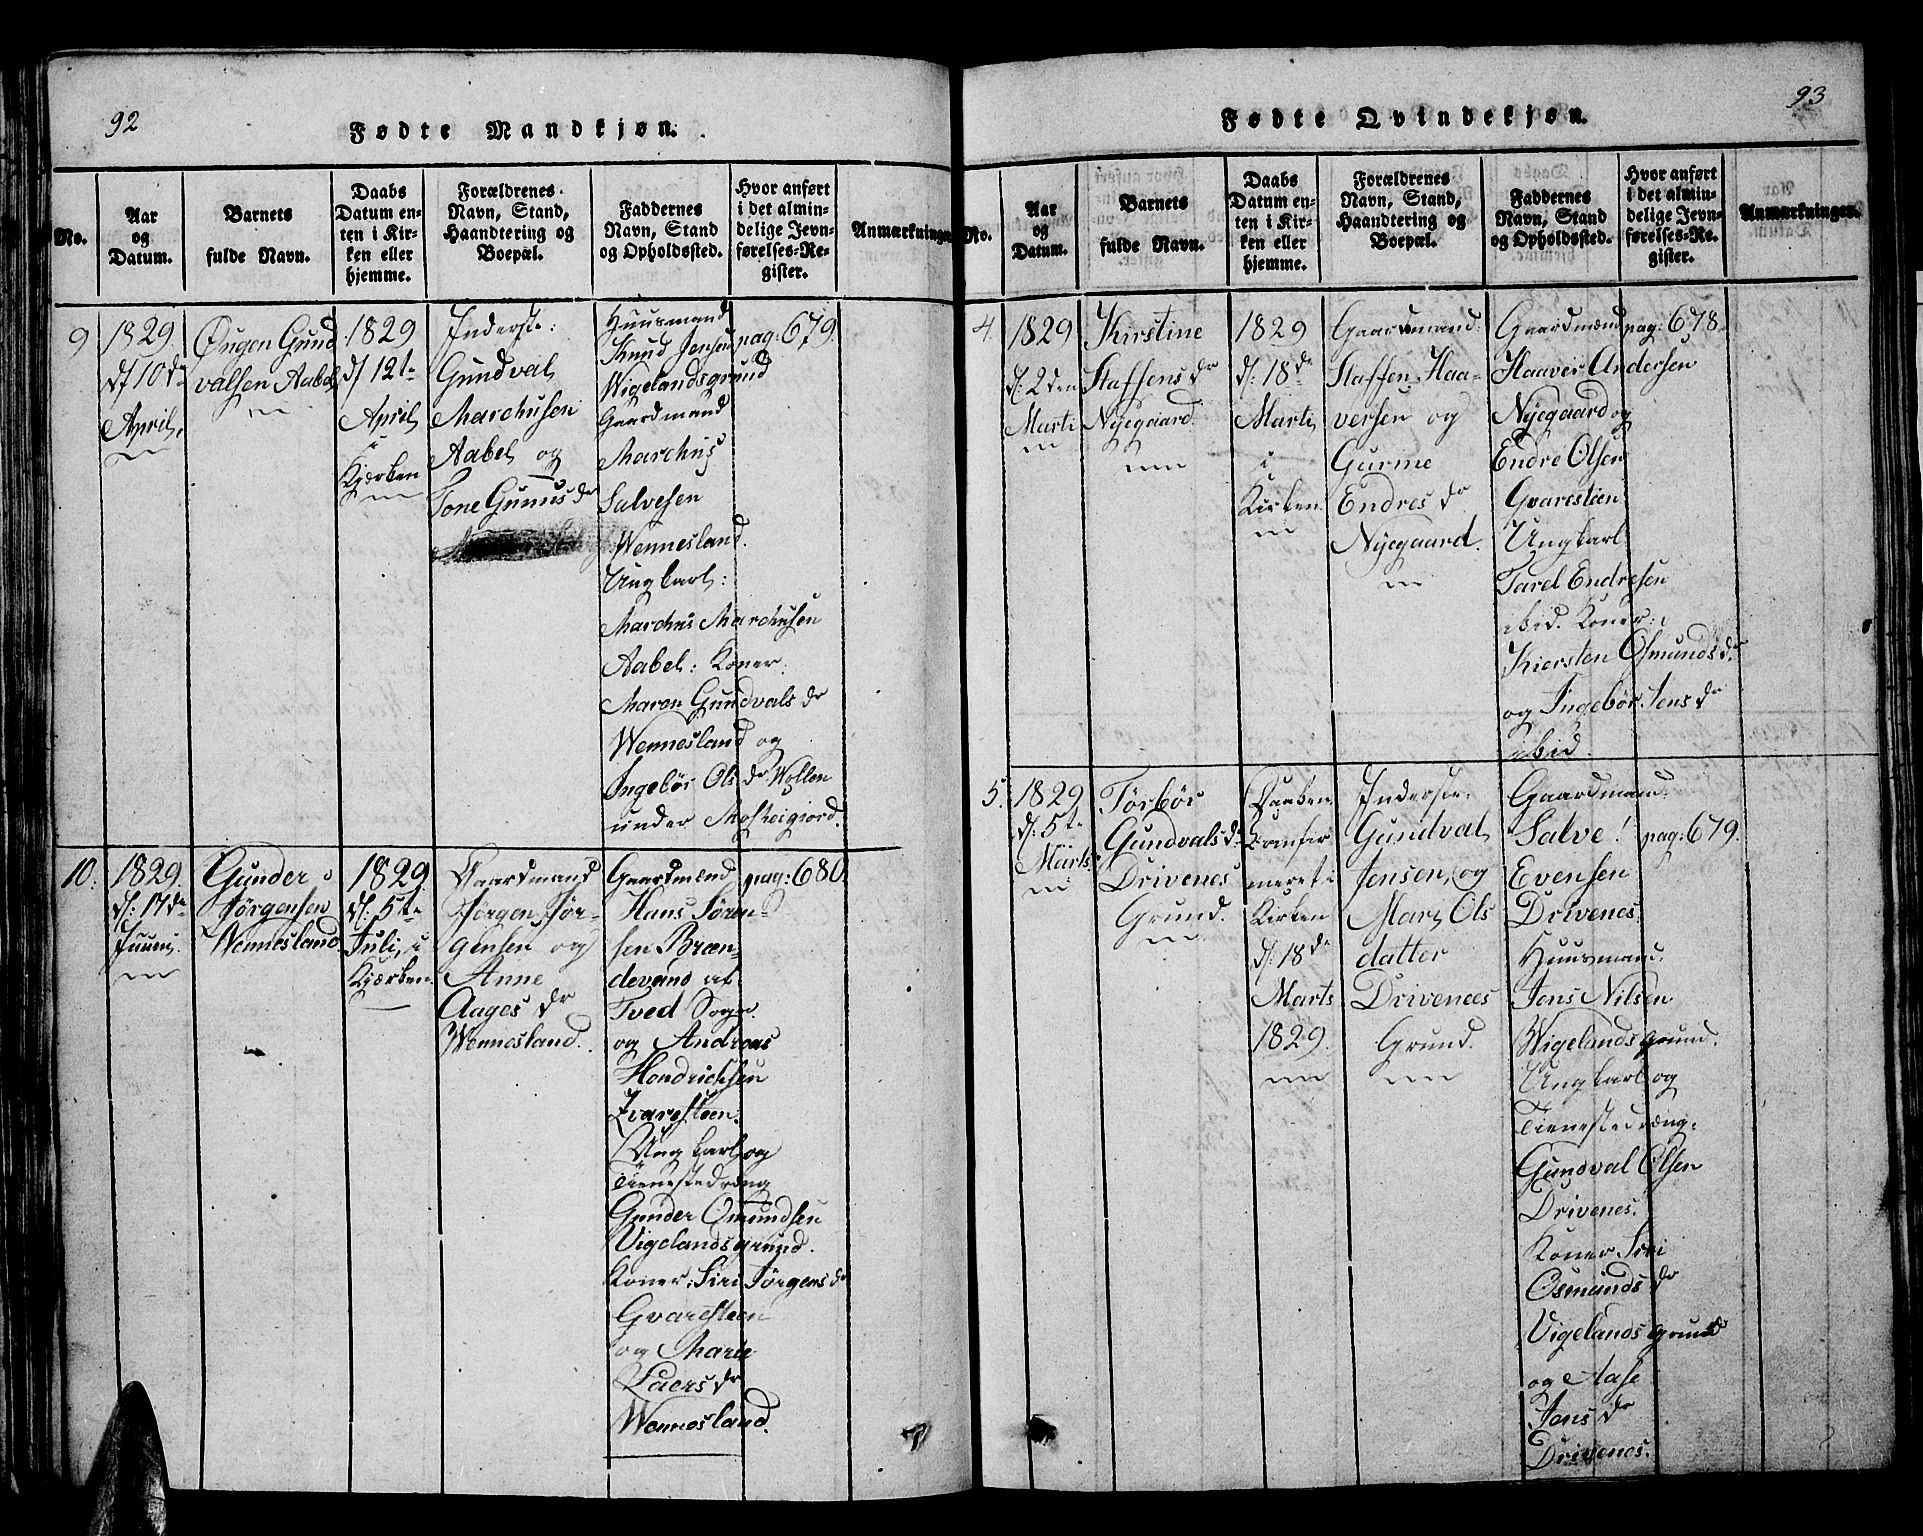 92
Fødte Mandkjøn.
No.
Aar
og
Datum.
Barnets
fulde Navn.
Daabs
Datum en-
ten i Kir-
ken eller
hjemme.
Forældrenes
Navn, Stand,
Haandtering og
Boepæl.
Faddernes
Navn, Stand
og Opholdssted.
Hvor anført
i det almin-
delige Jevn-
førelses-Re-
gister.
Anmærkninger.
9
1829.
d/ 10de
April,
Øugen Gund
valsen Aabel,
1829
d/ 12te
April,
i
Kjørken
Inderste:
Gundval,
Marchusen
Aabel, og
Tone Gunus dr
Huusmand
Knud Jensen
Wigelandsgrund
Gaardmand
Marchus
Salvesen
Wennesland.
Ungkarl,:
Marchus Marchusen
Aabel: Koner.
Maren Gundvals dr
Wennesland og
Ingebør Ols dr Wollen
under Mosbeigiord.
pag: 679.
10:
1829.
d/: 17de
Juuni,
Gunder
Jørgensen
Wennesland.
1829.
d/: 5te
Juli, i
Kjørken.
Gaardmand
Jørgen Jør-
gensen og
Anne
Aages dr
Wennesland.
Gaardmænd
Hans Søren-
sen Bræn-
devand af
Tved Sogn.
og Andreas
Hendrichsen
Qvarsteen.
Ungkarl, og
Tienestedreng
Gunder Omundsen
Vigelandsgrund.
Koner: Siri Jørgens dr
Gvaresteen
og Marte
Laers dr
Wennesland.
pag: 680.
93
Fødte Qvindekjøn.
No.
Aar
og
Datum.
Barnets
fulde Navn.
Daabs
Datum en-
ten i Kir-
ken eller
hjemme.
Forældrenes
Navn, Stand,
Haandtering og
Boepæl.
Faddernes
Navn, Stand
og Opholdssted.
Hvor anført
i det almin-
delige Jevn-
førelses-Re-
gister.
Anmærkninger.
4.
1829
d/: 2den
Marti
Kirstine
Staffens dr
Nyegaard.
1829
d/: 18de
Marti,
i
Kirken
Gaardmand:
Staffen Haa-
versen og
Gurine
Endres dr
Nyegaard.
Gaardmænd
Haaver Andersen
Nyegaard og
Endre Olsen
Gvaresteen
Ungkarl
Tarel Endresen
ibid. Koner:
Kiersten Osmunds dr
og Ingebør Jens dr
ibid.
pag: 678.
5.
1829
d/: 5te
Marts.
Tørbør
Gundvals dr
Drivenes
Grund.
Daaben
Comfir
meret i
Kirken
d/: 18de
Marts
1829.
Inderste.
Gundval,
Jensen, og
Mari, Ols
datter
Drivenees
Grund.
Gaardmand.
Salve!
Evensen
Drivenes.
Huusmand.
Jens Nilsen
Wigelands grund.
Ungkarl og
Tienestedræng.
Gundval Olsen
Drivenes.
Koner Siri
Osmunds dr
Vigelands grund
og Aase
Jens dr
Drivenes.
pag: 679.